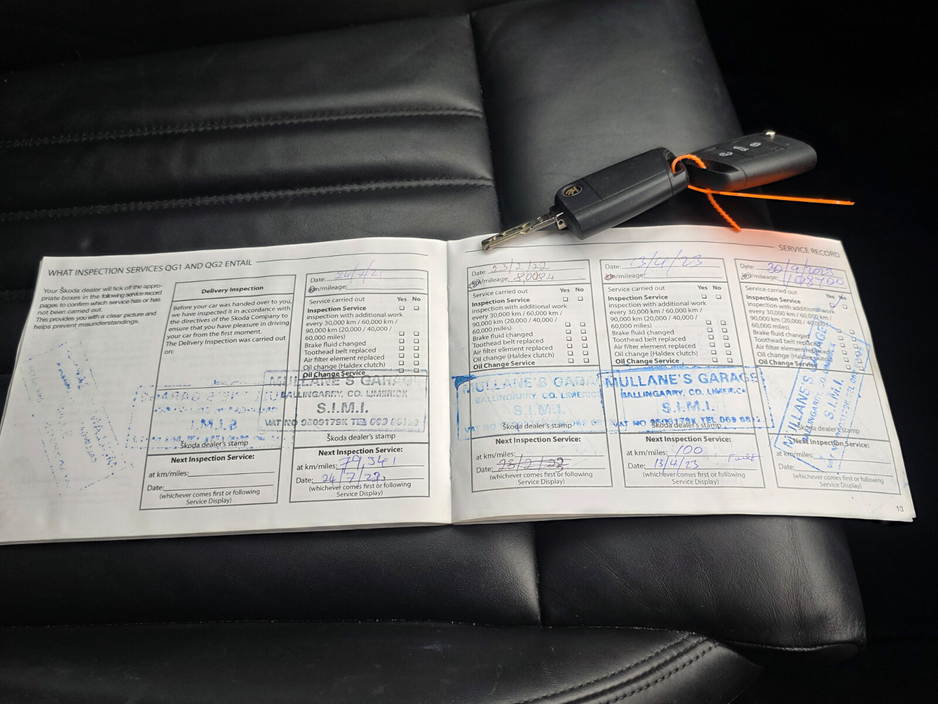 WHAT INSPECTION SERVICES QG1 AND QG2 ENTAIL
Your Škoda dealer will tick off the appro-
priate boxes in the following service record
pages to confirm which service has or has
not been carried out.
This provides you with a clear picture and
helps prevent misunderstandings.
Delivery Inspection
Before your car was handed over to you,
we have inspected it in accordance with
the directives of the Skoda Company to
ensure that you have pleasure in driving
your car from the first moment.
The Delivery Inspection was carried out
on:
Škoda dealer's stamp
Next Inspection Service:
at km/miles:
Date:
(whichever comes first or following
Service Display)
Date:
km/mileage:
Service carried out
Yes No
Inspection Service
inspection with additional work
every 30,000 km / 60,000 km /
90,000 km (20,000 / 40,000 /
60,000 miles)
Brake fluid changed
Toothead belt replaced
Air filter element replaced
Oil change (Haldex clutch)
Oil Change Service
MULLANE'S GARAG
BALLINGARRY, CO. LIMERICK
S.I.M.I.
VAT NO 9E09179K TEL 069
Škoda dealer's stamp
Next Inspection Service:
at km/miles:
Date: 24/7/22
(whichever comes first or following
Service Display)
SERVICE RECORD
Date: 23/2/22
km/mileage: 80084
Service carried out
Yes No
Inspection Service
inspection with additional work
every 30,000 km / 60,000 km /
90,000 km (20,000 / 40,000 /
60,000 miles)
Brake fluid changed
Toothead belt replaced
Air filter element replaced
Oil change (Haldex clutch)
Oil Change Service
MULLANE'S GARA
BALLINGARRY, CO. LIMERIC
S.I.M.I.
VAT NO 9E09179K TEL 069
Škoda dealer's stamp
Next Inspection Service:
at km/miles:
Date: 23/2/22
(whichever comes first or following
Service Display)
Date: 13/4/23
km/mileage:
Service carried out
Yes No
Inspection Service
inspection with additional work
every 30,000 km / 60,000 km /
90,000 km (20,000 / 40,000 /
60,000 miles)
Brake fluid changed
Toothead belt replaced
Air filter element replaced
Oil change (Haldex clutch)
Oil Change Service
MULLANE'S GARAGE
BALLINGARRY, CO. LIMERICK
S.I.M.I.
VAT NO 9E09179K TEL 069
Škoda dealer's stamp
Next Inspection Service:
at km/miles: 100
Date: 13/4/23
(whichever comes first or following
Service Display)
Date:
km/mileage:
Service carried out
Yes No
Inspection Service
inspection with additional work
every 30,000 km / 60,000 km /
90,000 km (20,000 / 40,000 /
60,000 miles)
Brake fluid changed
Toothead belt replaced
Air filter element replaced
Oil change
Oil Change Service
MULLANE'S
S.I.M.I.
Škoda dealer's stamp
Next Inspection Service:
at km/miles:
Date:
(whichever comes first or following
Service Display)
13